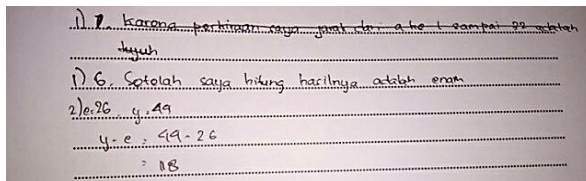 1) 7. Karena perkiraan saya jarak dari a ke t sampai 22 adalah
tujuh
1) 6. Setelah saya hitung hasilnya adalah enam
2) e=26 y=44
y-e = 44-26
= 18